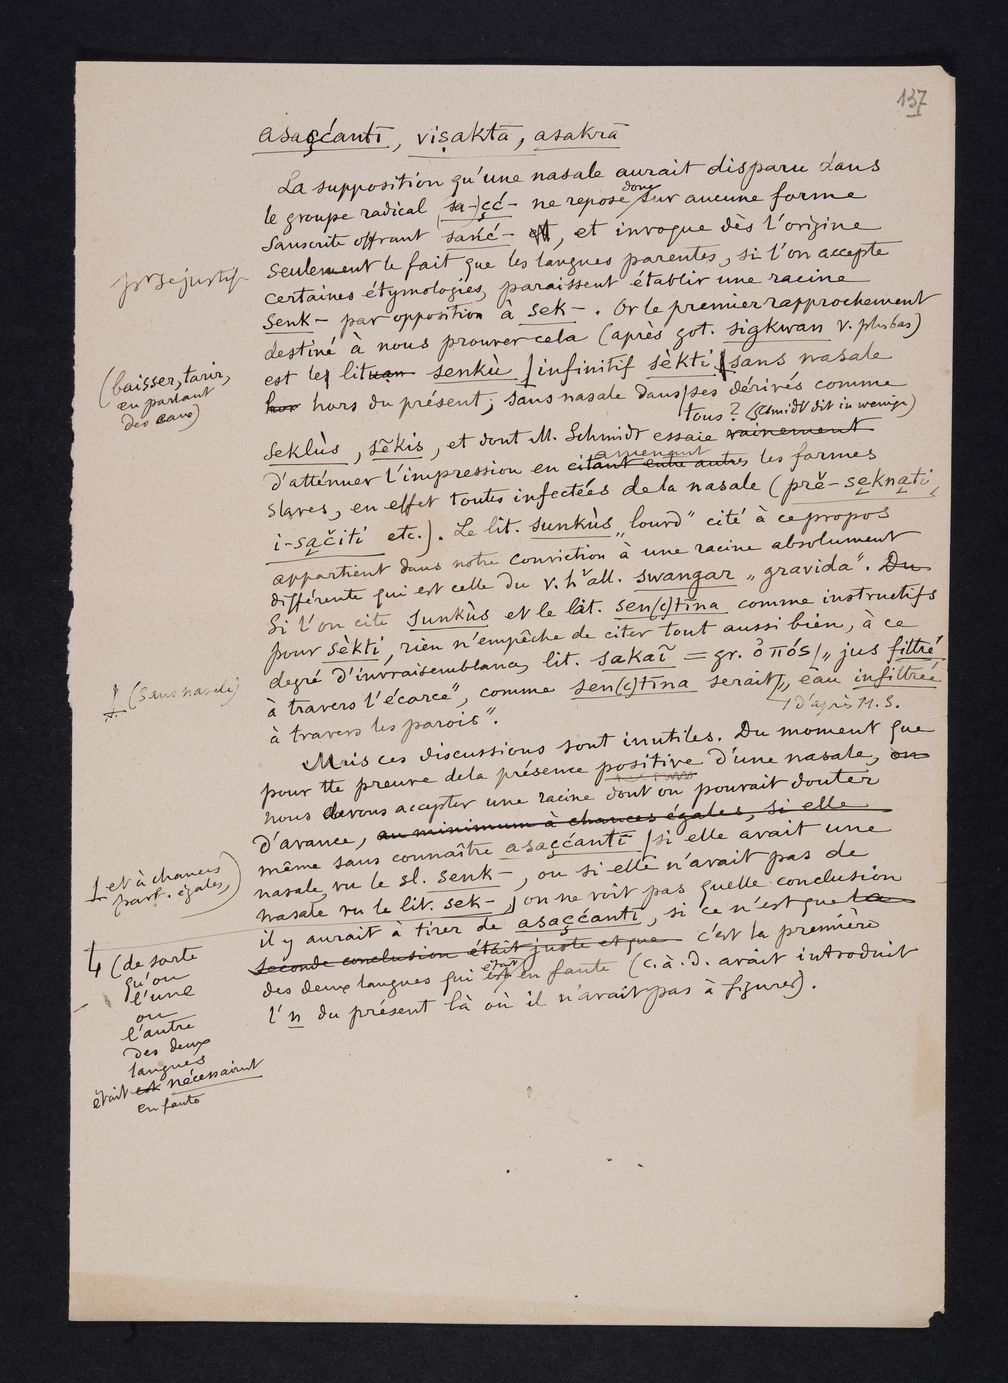 137
asaçćantī, viṣaktā, asakrā
La supposition qu'une nasale aurait disparu dans
le groupe radical (sa-)çć- ne repose donc sur aucune forme
sanscrite offrant sańć- , et invoque dès l'origine
pr se justif
seulement le fait que les langues parentes, si l'on accepte
certaines étymologies, paraissent établir une racine
senk- par opposition à sek-. Or le premier rapprochement
destiné à nous prouver cela (après got. sigkwan v. plus bas)
est le lituan senkù infinitif sèkti sans nasale
(baisser, tarir,
en parlant
des eaux)
hor hors du présent; sans nasale dans ses dérivés comme
tous? (Schmidt dit in wenige)
seklùs, sẽkis, et dont M. Schmidt essaie vainement
d'atténuer l'impression en citant entre autres amenant les formes
slaves, en effet toutes infectées de la nasale (prě-sęknąti,
i-sąčiti etc.). Le lit. sunkùs „lourd" cité à ce propos
appartient dans notre conviction à une racine absolument
différente qui est celle du v. ht all. swangar „gravida". Du
Si l'on cite sunkùs et le lat. sen(c)tīna comme instructifs
pour sèkti, rien n'empêche de citer tout aussi bien, à ce
degré d'invraisemblance, lit. sakaĩ = gr. ὀπός „jus filtré
(sans nasale)
à travers l'écorce", comme sen(c)tīna serait „eau infiltrée
d'après M. S.
à travers les parois".
Mais ces discussions sont inutiles. Du moment que
pour tte preuve de la présence positive d'une nasale, on
nous devons accepter une racine dont on pouvait douter
d'avance, au minimum à chances égales, si elle
et à chances
parf. égales,
même sans connaître asaçćantī si elle avait une
nasale vu le sl. senk-, ou si elle n'avait pas de
nasale vu le lit. sek-, on ne voit pas quelle conclusion
il y aurait à tirer de asaçćantī, si ce n'est que la
seconde conclusion était juste et que c'est la première
(de sorte
qu'on
l'une
ou
l'autre
des deux
langues
était est nécessairmt
en faute
des deux langues qui est était en faute (c.à.d. avait introduit
l'n du présent là où il n'avait pas à figurer).